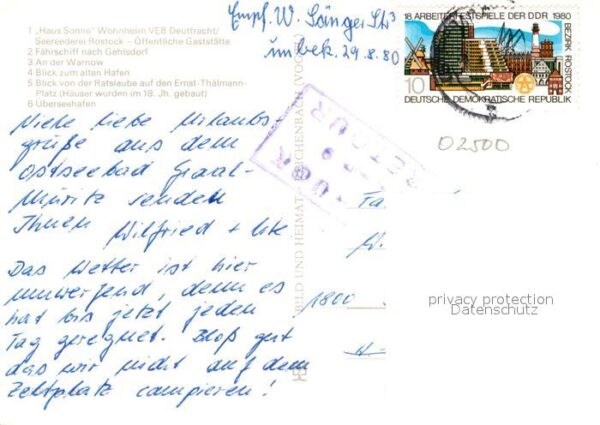 1 „Haus Sonne" Wohnheim VEB Deutfracht/
Seereederei Rostock – Öffentliche Gaststätte
2 Fährschiff nach Gehlsdorf
3 An der Warnow
4 Blick zum alten Hafen
5 Blick von der Ratslaube auf den Ernst-Thälmann-
Platz (Häuser wurden im 18. Jh. gebaut)
6 Überseehafen
Empf. W. Sänger
unbek. 29.8.80
18. ARBEITERFESTSPIELE DER DDR 1980
BEZIRK ROSTOCK
10
DEUTSCHE DEMOKRATISCHE REPUBLIK
02500
Viele liebe Urlaubs-
grüße aus dem
Ostseebad Graal-
Müritz senden
Ihnen Wilfried + Ute
Das Wetter ist hier
umwerfend, denn es
hat bis jetzt jeden
Tag geregnet. Bloß gut
das wir nicht auf dem
Zeltplatz campieren!
RETOUR
BILD UND HEIMAT REICHENBACH
1800
privacy protection
Datenschutz